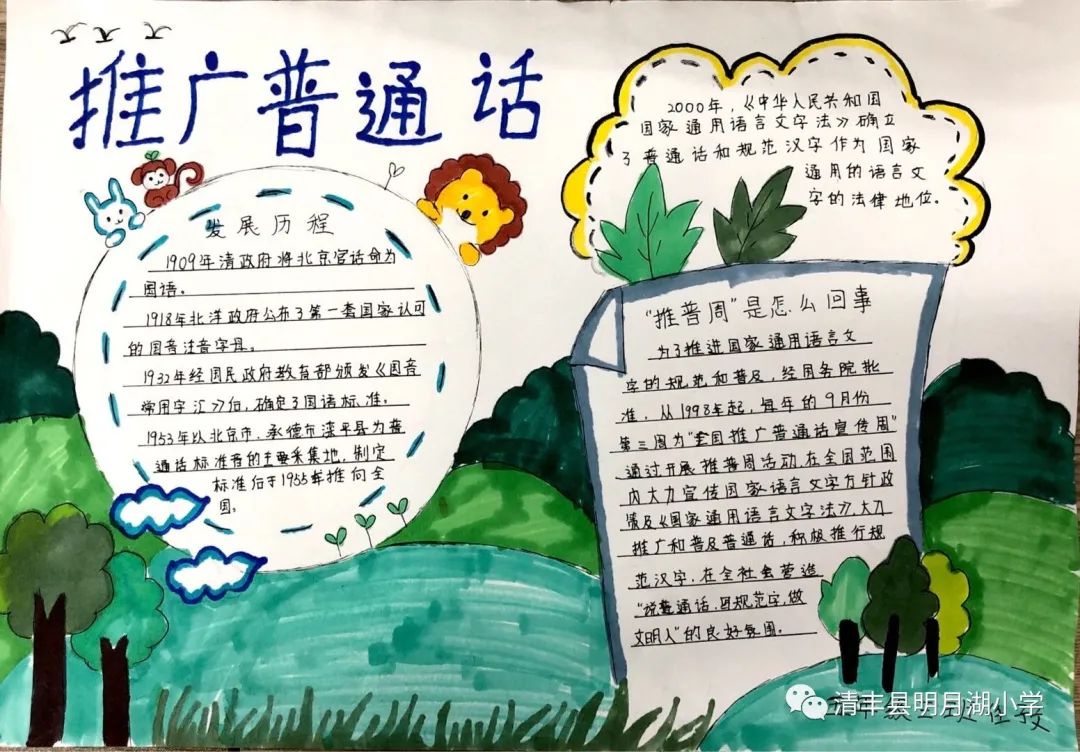 推广普通话
发展历程
1909年清政府将北京官话命为
国语。
1918年北洋政府公布了第一套国家认可
的国音注音字母。
1932年经国民政府教育部颁发《国音
常用字汇》后,确定了国语标准。
1953年以北京市、承德市滦平县为普
通话标准音的主要采集地,制定
标准后于1955年推向全
国。
2000年,《中华人民共和国
国家通用语言文字法》确立
了普通话和规范汉字作为国家
通用的语言文
字的法律地位。
“推普周”是怎么回事
为了推进国家通用语言文
字的规范和普及,经国务院批
准,从1998年起,每年的9月份
第三周为“全国推广普通话宣传周”
通过开展推普周活动在全国范围
内大力宣传国家语言文字方针政
策及《国家通用语言文字法》大力
推广和普及普通话,积极推行规
范汉字,在全社会营造
“说普通话,写规范字,做
文明人”的良好氛围。
清丰县明月湖小学